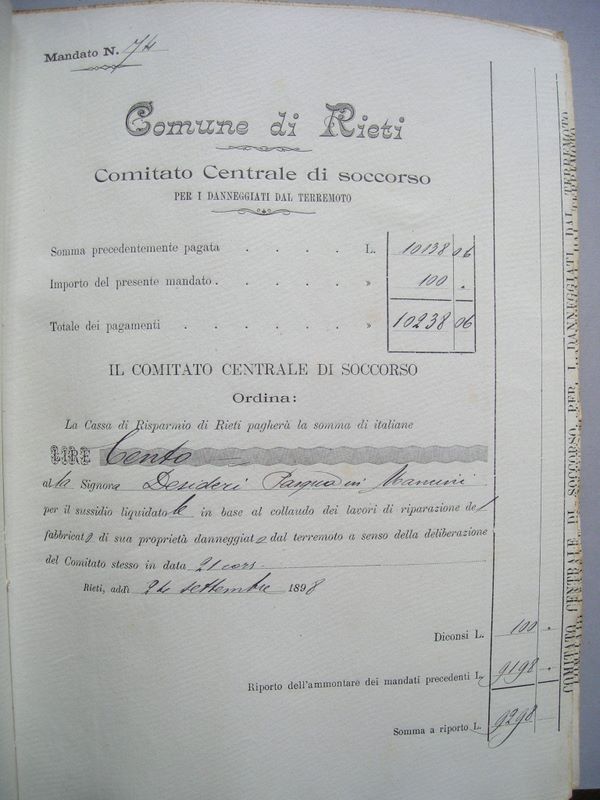 Mandato N. 74
Comune di Rieti
Comitato Centrale di soccorso
PER I DANNEGGIATI DAL TERREMOTO
Somma precedentemente pagata . . . . L. 10138 06
Importo del presente mandato . . . . . » 100 .
Totale dei pagamenti . . . . . . » 10238 06
IL COMITATO CENTRALE DI SOCCORSO
Ordina:
La Cassa di Risparmio di Rieti pagherà la somma di italiane
LIRE Cento
alla Signora Desideri Pasqua in Mancini
per il sussidio liquidatole in base al collaudo dei lavori di riparazione del
fabbricato di sua proprietà danneggiato dal terremoto a senso della deliberazione
del Comitato stesso in data 21 cors.
Rieti, addì 24 settembre 1898
Diconsi L. 100 .
Riporto dell'ammontare dei mandati precedenti L. 9198 .
Somma a riporto L. 9298
COMITATO CENTRALE DI SOCCORSO PER I DANNEGGIATI DAL TERREMOTO